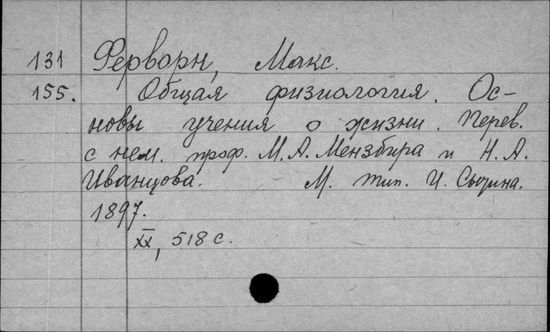 131 Ферворн, Макс.
155. Общая физиология. Ос-
новы учения о жизни. Перев.
с нем. проф. М. А. Мензбира и Н. А.
Иванцова. М. тип. И. Сытина.
1897.
XX, 518 с.